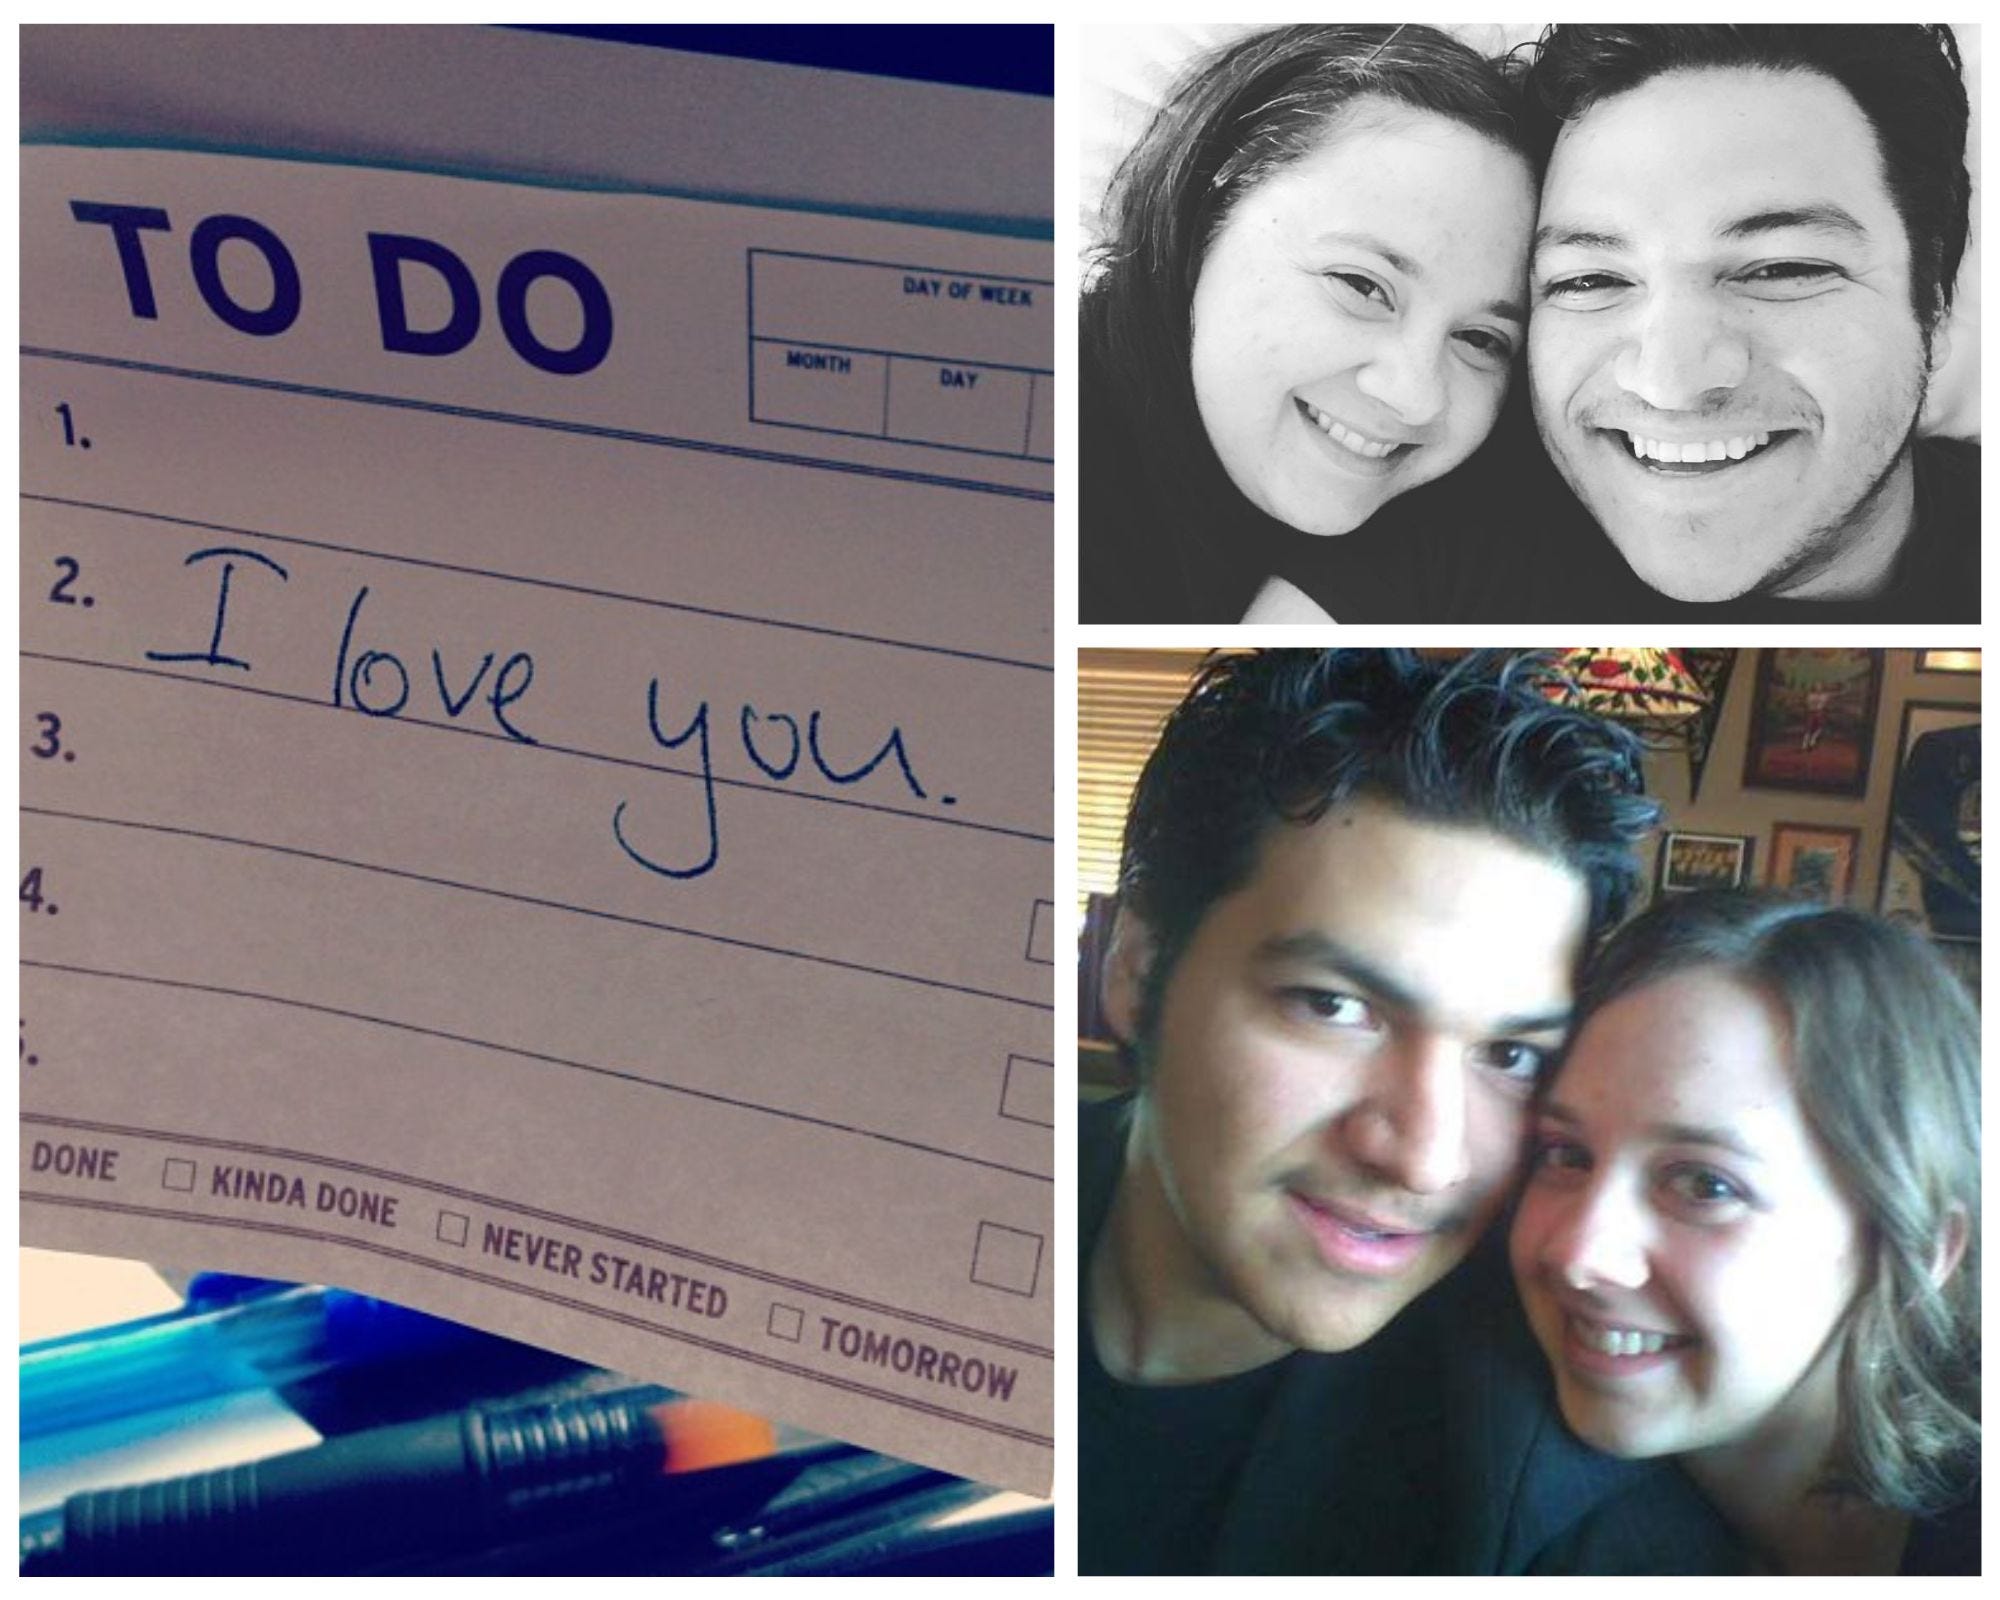 TO DO
DAY OF WEEK
MONTH DAY
1.
2. I love you.
3.
4.
DONE KINDA DONE NEVER STARTED TOMORROW